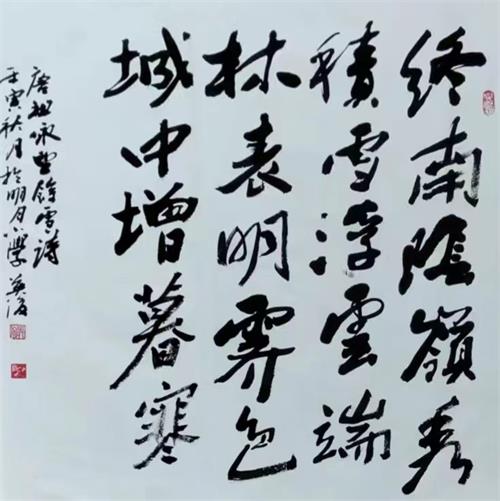 終南陰嶺秀
積雪浮雲端
林表明霽色
城中增暮寒
唐祖咏望餘雪詩
壬寅秋月於明月小學